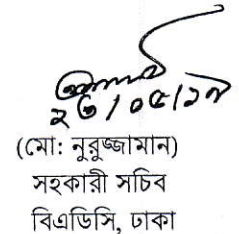 ২৬/০৫/১৯
(মো: নুরুজ্জামান)
সহকারী সচিব
বিএডিসি, ঢাকা